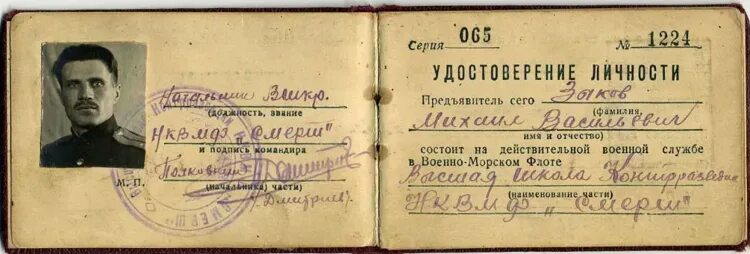 Начальник ВШКР.
(должность, звание
НКВМФ "Смерш"
и подпись командира
Полковник
М. П.
(начальника) части)
(Дмитриев)
Серия 065 № 1224
УДОСТОВЕРЕНИЕ ЛИЧНОСТИ
Предъявитель сего Зыков
(фамилия,
Михаил Васильевич
имя и отчество)
состоит на действительной военной службе
в Военно-Морском Флоте
Высшая школа Контрразведки
(наименование части)
НКВМФ „Смерш"